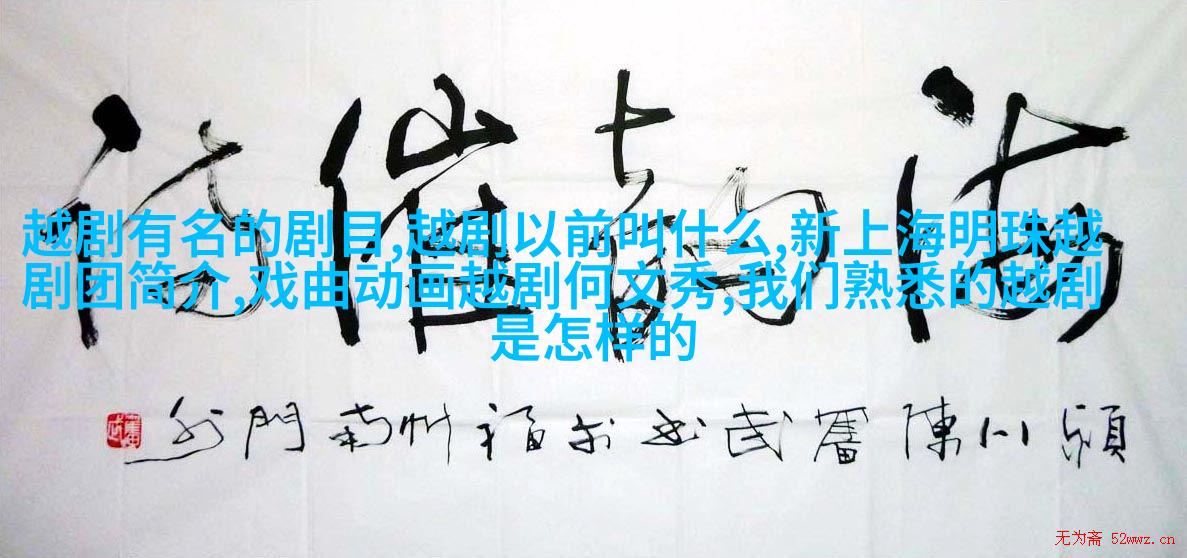 越剧有名的剧目,越剧以前叫什么,新上海明珠越
剧团简介,戏曲动画越剧何文秀,我们熟悉的越剧
是怎样的
川陳奮武书於福州南門外
无为斋 52wwz.cn